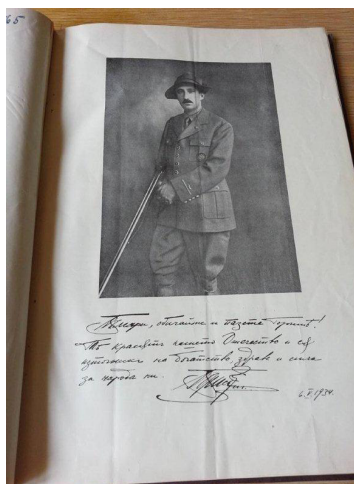 65
обичайте и пазете горите!
Те красят нашето Отечество и са
източникъ на богатство, здраве и сила
за народа ни.
6.V.1934.